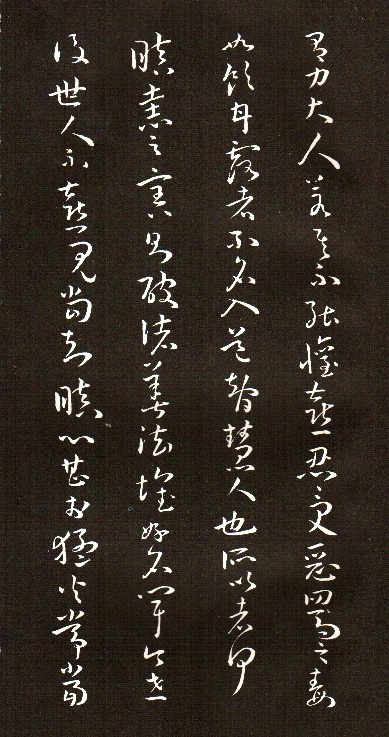 有力大人若其不能懽喜忍受惡罵之毒
如飲甘露者不名入道智慧人也所以者何
瞋恚之害則破諸善法壞好名聞今世
後世人不喜見當知瞋心甚於猛火常當